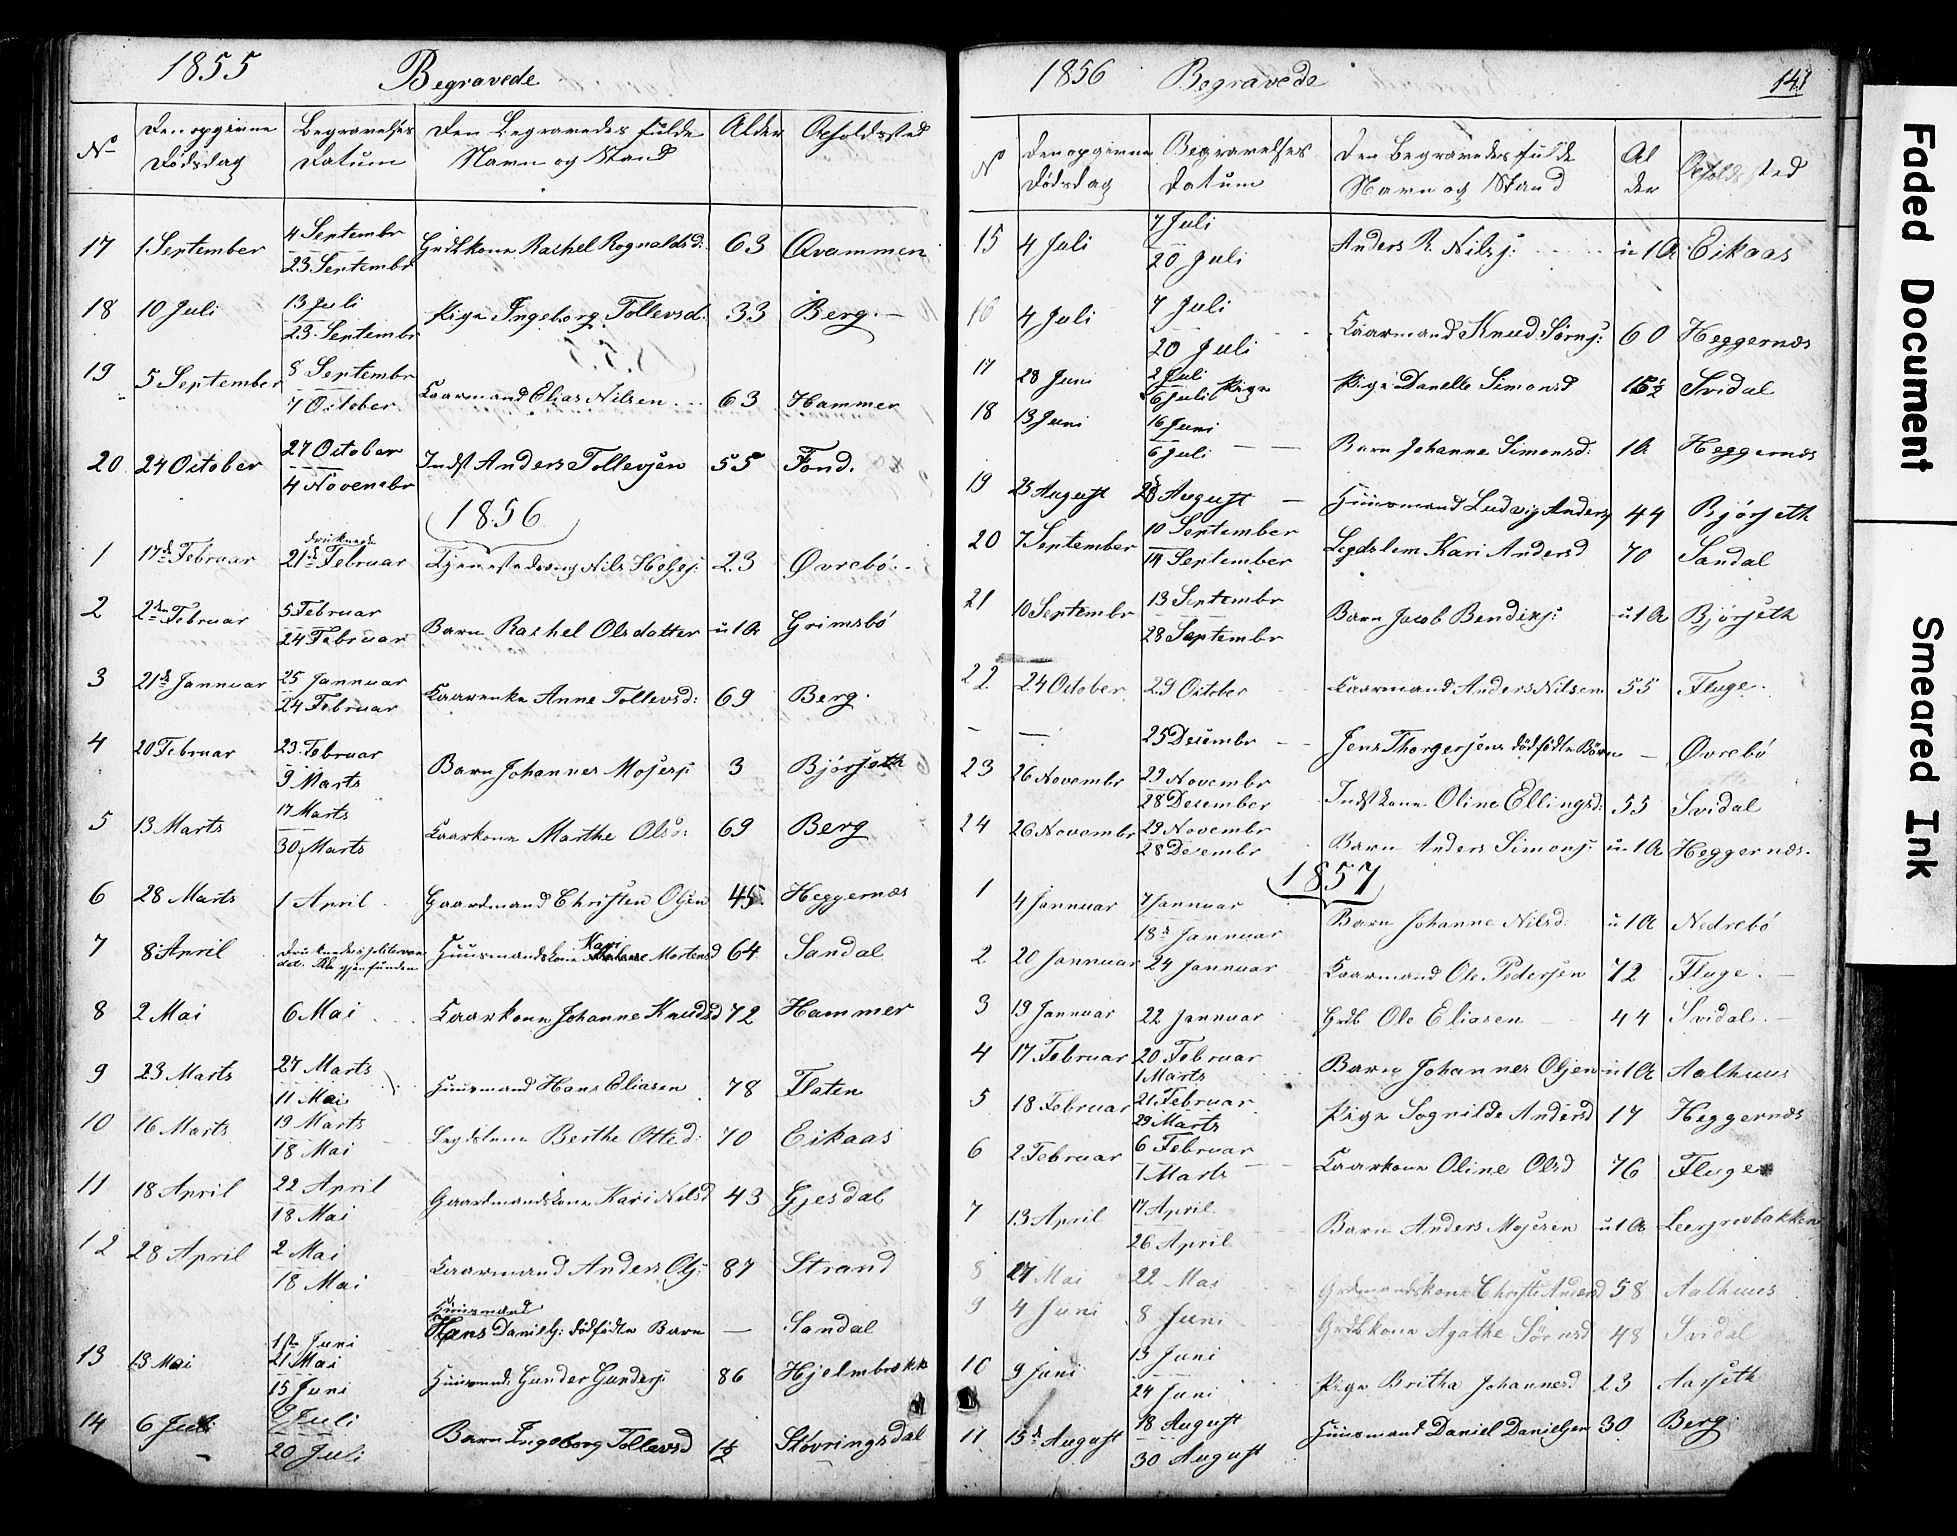 1855 Begravede
N Den opgivne Dødsdag Begravelses Datum Den Begravedes fulde Navn og Stand Alder Opholdssted
17 1. September 4 Septembr 23. Septembr Grdbkone Rachel Rognaldsd: 63 Qvammen
18 10 Juli 13 Juli 23. Septembr Pige Ingeborg Tollevsd. 33 Berg. —
19 5 September 8 Septembr 7 October Kaarmand Elias Nilsen 63 Hammer
20 24 October 27 October 4 Novembr Indst Anders Tollevsen 55 Fond.
1856
1 17de Februar druknede 21de Februar Tjenestedreng Nils Helgej: 23 Øvrebö
2 2den Februar 5. Februar 24 Februar Barn Rachel Olsdatter u 1 A Grimsbö
3 21de Jannuar 25 Jannuar 24 Februar Kaarenke Anne Tollevsd: 69 Berg.
4 20 Februar 23. Februar 9 Marts Barn Johannes Mosesj: 3 Bjørseth
5 13 Marts 17 Marts 30 Marts Kaarkone Marthe Olsd: 69 Berg
6 28 Marts 1 April Gaardmand Christen Olsen 45 Heggernæs
7 8 April gjenfunden Huusmandskone Kari Mortensd 64 Sandal
8 2 Mai 6 Mai Kaarkone Johanne Knudsd 72 Hammer
9 23 Marts 27 Marts 11 Mai Huusmand Hans Eliasen 78 Flaten
10 16 Marts 19 Marts 18 Mai Legdslem Berthe Ottesd: 70 Eikaas
11 18 April 22 April 18 Mai Gaardmandskone Kari Nilsd 43 Gjesdal
12 28 April 2 Mai 18 Mai Kaarmand Anders Olsj: 87 Strand
1ste Juni Huusmand Hans Danielsj: dödfödte Barn — Sandal
13 13 Mai 21 Mai 15 Juni Huusmd: Gunder Gundersj: 86 Hjelmbrekk
14 6 Juli 9 Juli 20 Juli Barn Ingeborg Tollevsd 1½ Støvringsdal
1856 Begravede 141
N Den opgivne Dødsdag Begravelses Datum Den Begravedes fulde Navn og Stand Alder Opholdssted
15 4 Juli 7 Juli 20 Juli Anders R. Nilsj: u 1 A Eikaas
16 4 Juli 7 Juli 20 Juli Kaarmand Knud Sørnsj: 60 Heggernæs
17 28 Juni 2 Juli 6 Juli Pige Pige Danelle Simonsd 16½ Svidal
18 13 Juni 16 Juni 6 Juli Barn Johanne Simonsd: 1 A Heggernæs
19 23 August 28 August — Huusmand Ludvig Andersj 44 Bjørseth
20 7 September 10 September 14 September Legdslem Kari Andersd 70 Sandal
21 10 Septembr 13 Septembr 28 Septembr Barn Jacob Bendixsj: u 1 A Bjørseth
22 24 October 29 October Kaarmand Anders Nilsen 55 Fluge.
— — 25 Desembr Jens Thorgersens dödfödte Barn — Øvrebö
23 26 Novembr 29 Novembr 28 Desember Indstkone Oline Ellingsd: 55 Svidal
24 26 Novembr 29 Novembr 28 Desembr Barn Anders Simonsj: u 1 A Heggernæs.
1857
1 4 Jannuar 7 Jannuar 18de Jannuar Barn Johanne Nilsd. u 1 A Nedrebö
2 20 Jannuar 24 Jannuar Kaarmand Ole Pedersen 72 Fluge. —
3 19 Jannuar 22 Jannuar Grdb Ole Eliasen 44 Svidal. —
4 17 Februar 20 Februar 1 Marts Barn Johannes Olsen u 1 A Aalhuus
5 18 Februar 21 Februar 29 Marts Pige Sognilde Andersd 17 Heggernæs
6 2 Februar 6 Februar 1 Marts Kaarkone Oline Olsd 76 Fluge
7 13 April 17 April 26 April Barn Anders Mosesen u 1 A
8 17 Mai 22 Mai Grdmandskone Christi Andersd 58 Aalhuus
9 4 Juni 8 Juni Grdbkone Agathe Sörnsd 48 Svidal
10 9 Juni 13 Juni 24 Juni Pige Britha Johannesd 23 Aarseth
11 15de August 18 August 30 August Huusmand Daniel Danielsen 30 Berg.
Faded Document
Smeared Ink